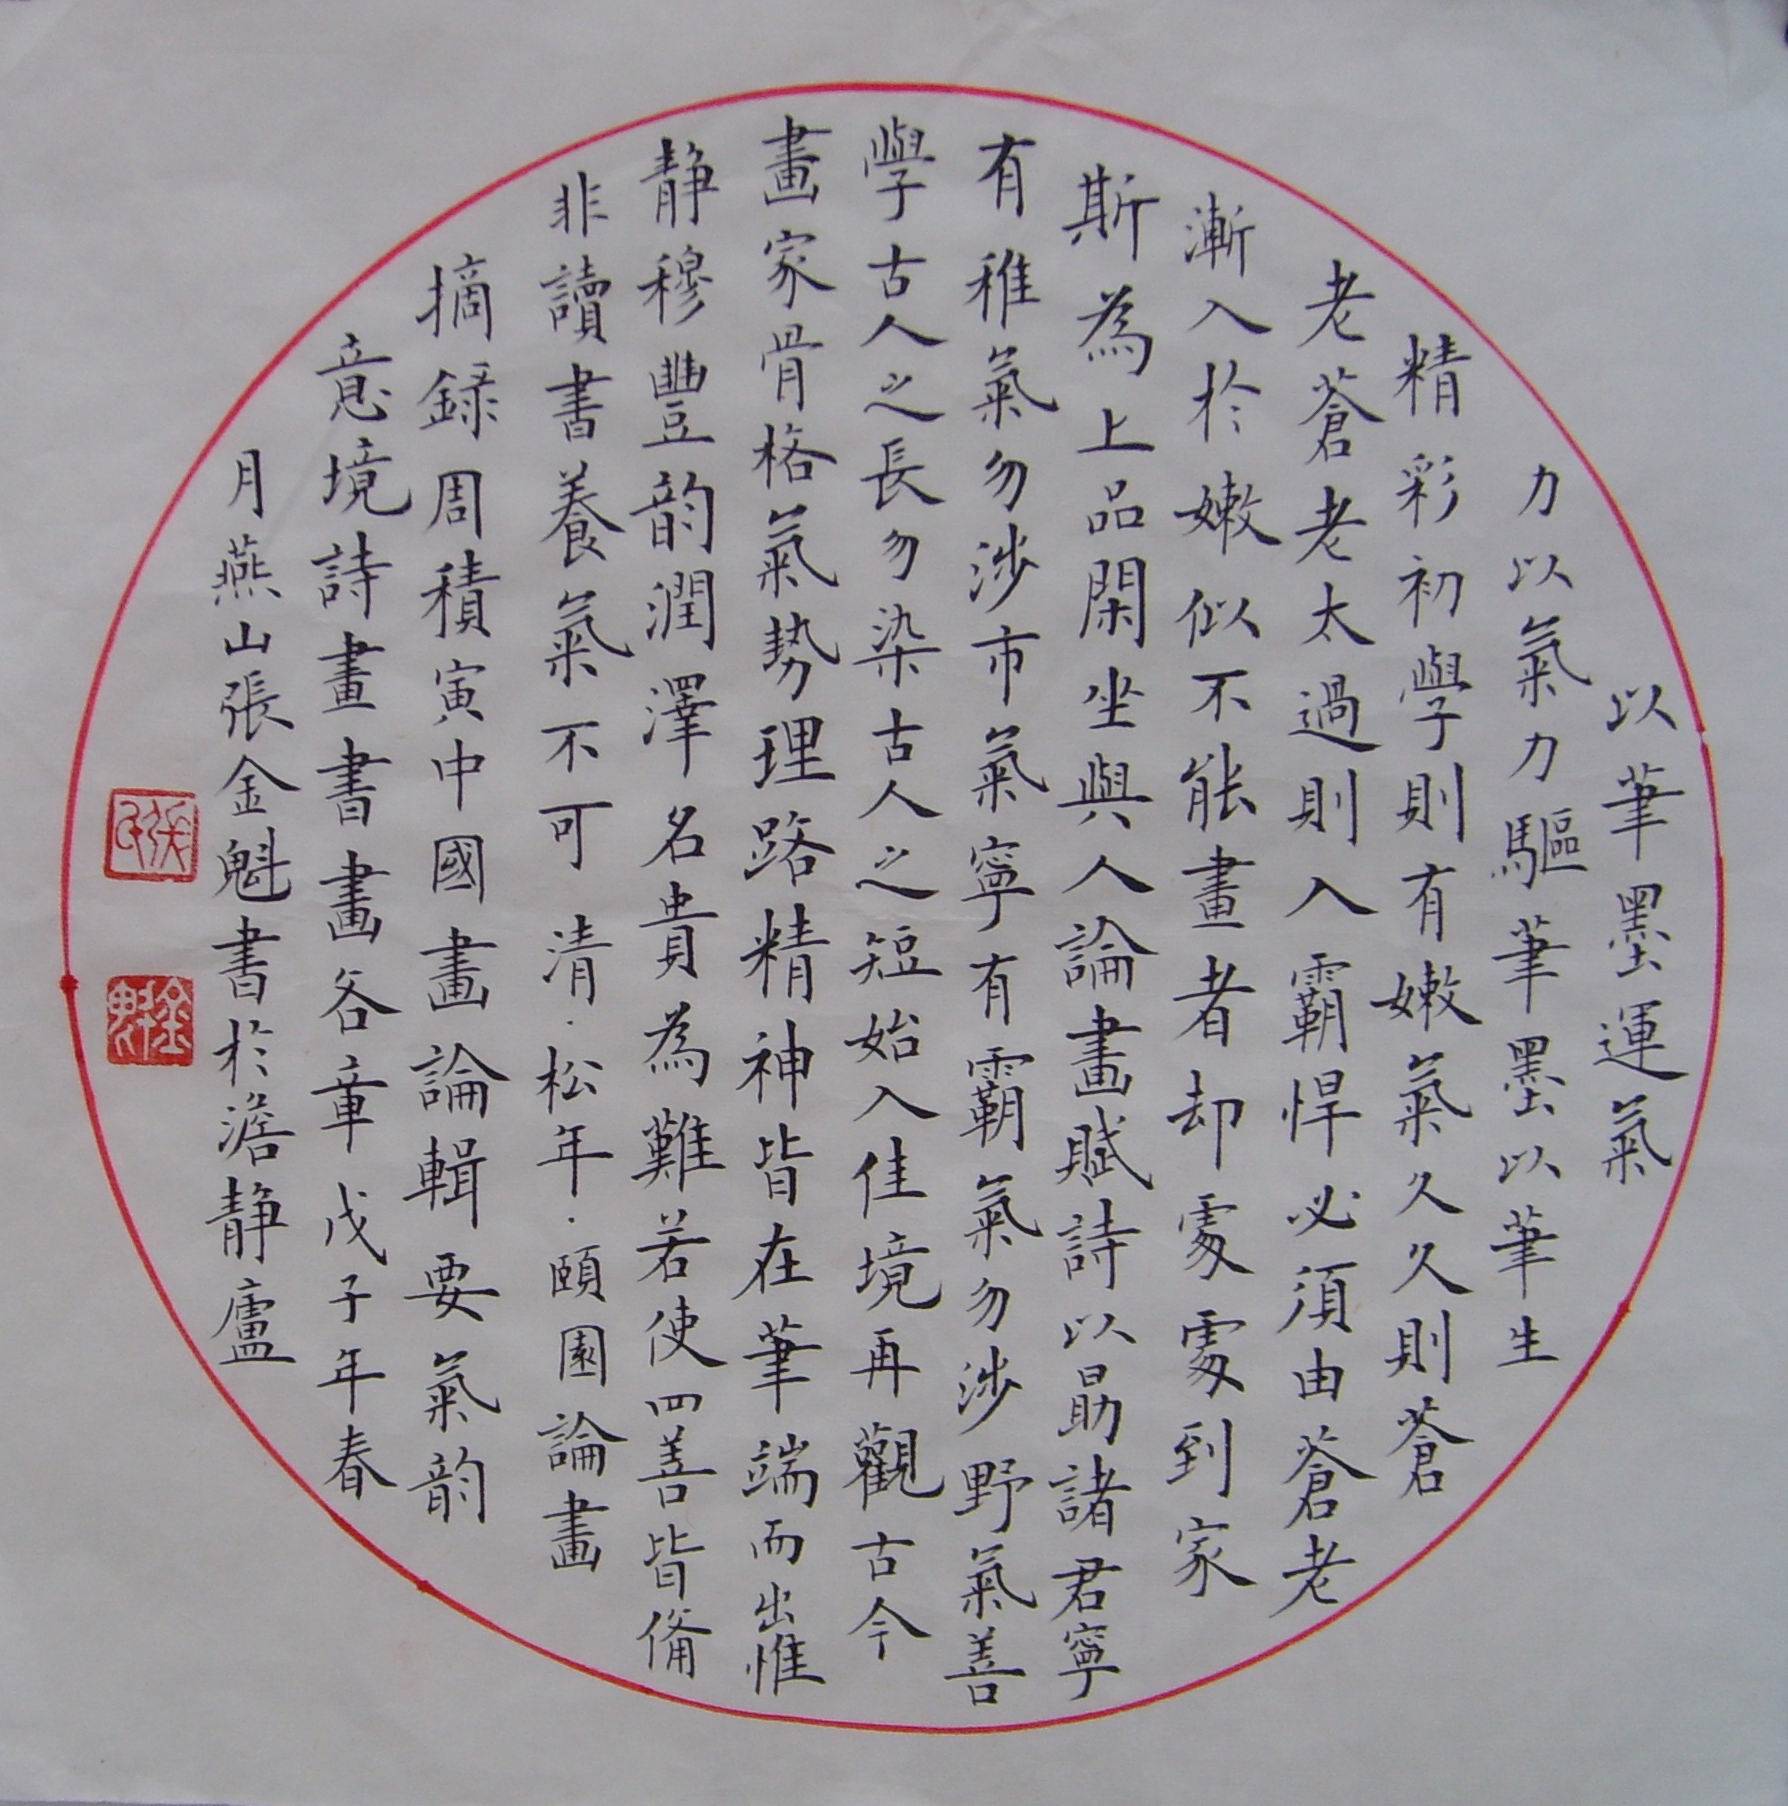 以筆墨運氣
力以氣力驅筆墨以筆生
精彩初學則有嫩氣久久則蒼
老蒼老太過則入霸悍必須由蒼老
漸入於嫩似不能畫者却處處到家
斯為上品閑坐與人論畫賦詩以勗諸君寧
有稚氣勿涉市氣寧有霸氣勿涉野氣善
學古人之長勿染古人之短始入佳境再觀古今
畫家骨格氣勢理路精神皆在筆端而出惟
靜穆豐韵潤澤名貴為難若使四善皆備
非讀書養氣不可清·松年·頤園論畫
摘録周積寅中國畫論輯要氣韵
意境詩畫書畫各章戊子年春
月燕山張金魁書於澹静廬
張氏
金魁